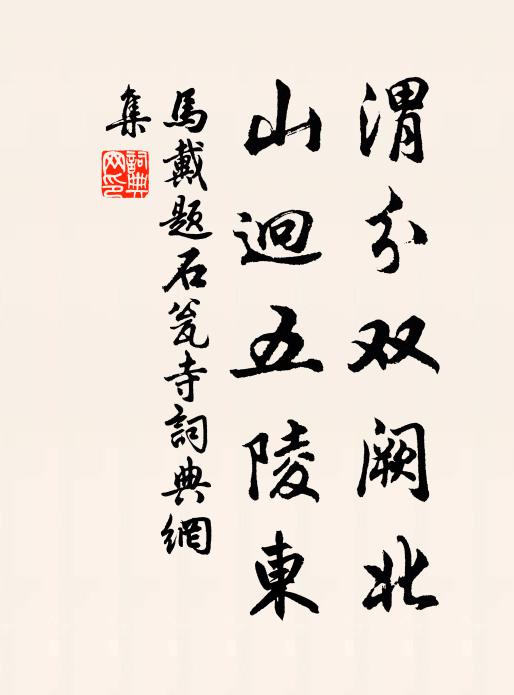 渭分双阙北
山迥五陵東
馬戴题石瓮寺詞典網
集
詞典网印